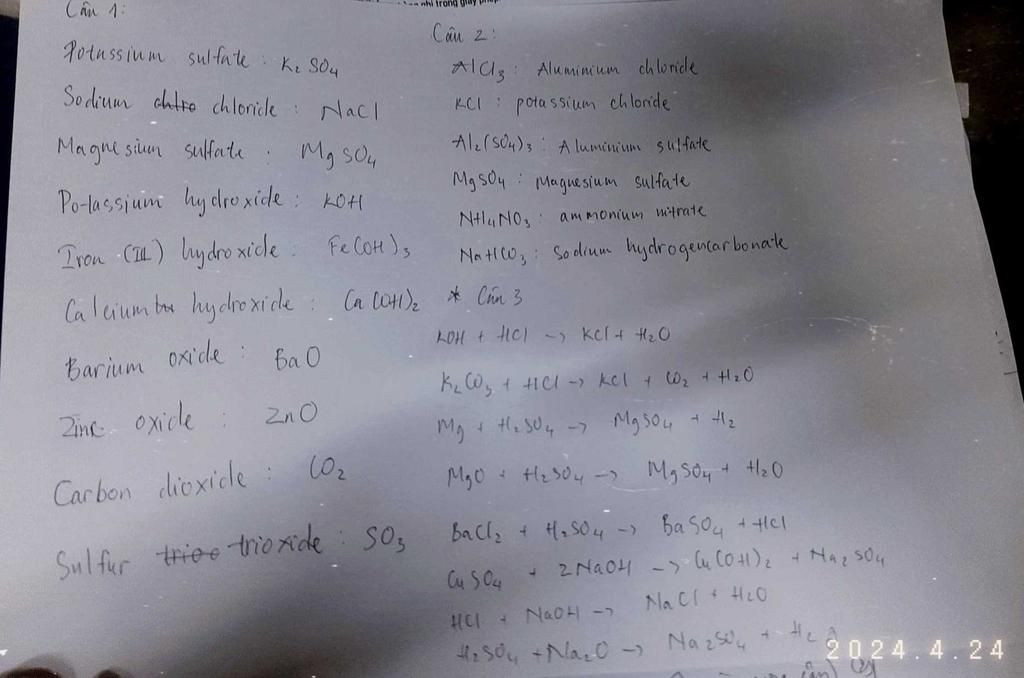 nhỉ trong giấy phép
Câu 1:
Potassium sulfate : K2SO4
Sodium chtro chloride : NaCl
Magnesium sulfate : MgSO4
Potassium hydroxide : KOH
Iron (III) hydroxide : Fe(OH)3
Calcium hydroxide : Ca(OH)2
Barium oxide : BaO
Zinc oxide : ZnO
Carbon dioxide : CO2
Sulfur trioc trioxide : SO3
Câu 2:
AlCl3 : Aluminium chloride
KCl : potassium chloride
Al2(SO4)3 : Aluminium sulfate
MgSO4 : Magnesium sulfate
NH4NO3 : ammonium nitrate
NaHCO3 : Sodium hydrogencarbonate
* Câu 3
KOH + HCl -> KCl + H2O
K2CO3 + HCl -> KCl + CO2 + H2O
Mg + H2SO4 -> MgSO4 + H2
MgO + H2SO4 -> MgSO4 + H2O
BaCl2 + H2SO4 -> BaSO4 + HCl
CuSO4 + 2NaOH -> Cu(OH)2 + Na2SO4
HCl + NaOH -> NaCl + H2O
H2SO4 + Na2O -> Na2SO4 + H2O
2024.4.24